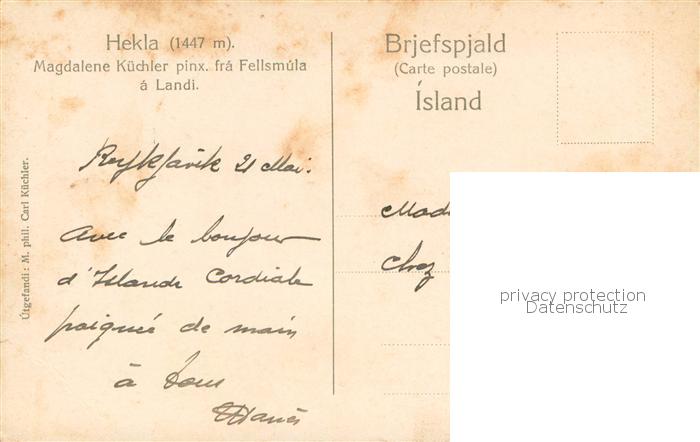 Hekla (1447 m).
Magdalene Küchler pinx. frá Fellsmúla
á Landi.
Brjefspjald
(Carte postale)
Ísland
Útgefandi: M. phil. Carl Küchler.
Reykjavik 21 Mai.
Avec le bonjour
d'Islande Cordiale
poignée de main
à tous
Mad
chez
privacy protection
Datenschutz